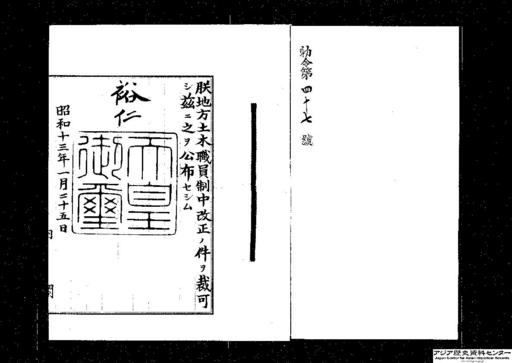 勅令第四十七號
朕地方土木職員制中改正ノ件ヲ裁可
シ茲ニ之ヲ公布セシム
裕仁
天皇御璽
昭和十三年一月二十五日
内閣
アジア歴史資料センター
Japan Center for Asian Historical Records